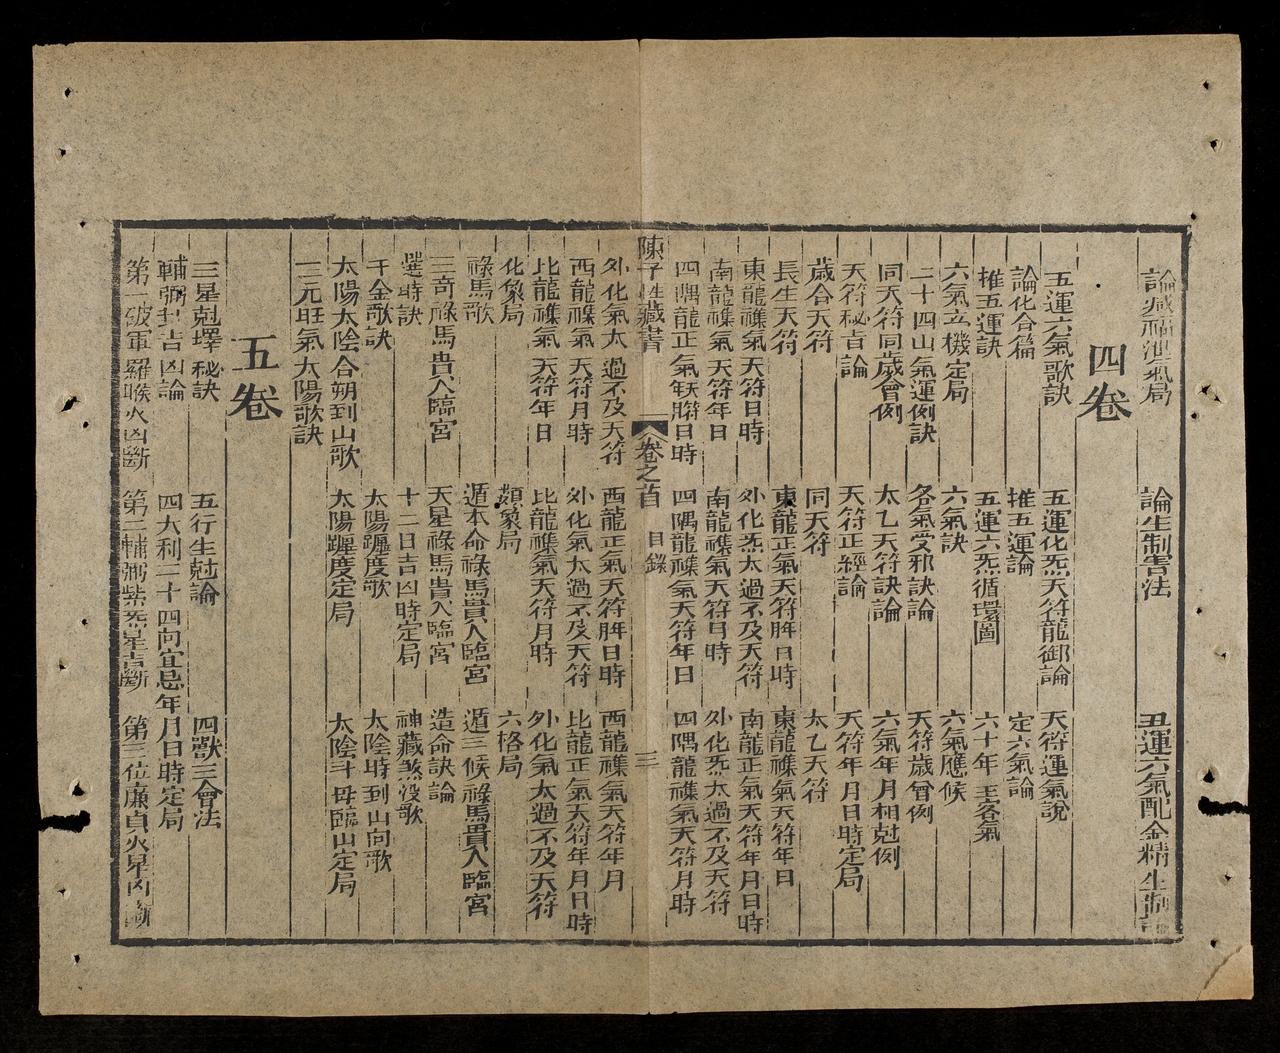 論藏福泄氣局 論生制害法 五運六氣配金精生制
四卷
五運六氣歌訣 五運化炁天符龍御論 天符運氣說
論化合篇 推五運論 定六氣論
推五運訣 五運六炁循環圖 六十年主客氣
六氣立機定局 六氣訣 六氣應候
二十四山氣運例訣 各氣受邪訣論 天符歲會例
同天符同歲會例 太乙天符訣論 六氣年月相尅例
天符秘旨論 天符正經論 天符年月日時定局
歲合天符 同天符 太乙天符
長生天符 東龍正氣天符年日時 東龍襍氣天符年日
東龍襍氣天符日時 外化炁太過不及天符 南龍正氣天符年月日時
南龍襍氣天符年日 南龍襍氣天符日時 外化炁太過不及天符
四隅龍正氣天符日時 四隅龍襍氣天符年日 四隅龍襍氣天符月時
陳子性藏書 卷之首 目錄 三
外化氣太過不及天符 西龍正氣天符年日時 西龍襍氣天符年月
西龍襍氣天符月時 外化氣太過不及天符 北龍正氣天符年月日時
北龍襍氣天符年日 北龍襍氣天符月時 外化氣太過不及天符
化象局 類象局 六格局
祿馬歌 遁本命祿馬貴人臨宮 遁三候祿馬貴人臨宮
三奇祿馬貴人臨宮 天星祿馬貴人臨宮 造命訣論
選時訣 十二日吉凶時定局 神藏煞沒歌
千金歌訣 太陽躔度歌 太陰時到山向歌
太陽太陰合朔到山歌 太陽躔度定局 太陰斗母臨山定局
三元旺氣太陽歌訣
五卷
三星尅擇秘訣 五行生尅論 四獸三會法
輔弼卦吉凶論 四大利二十四向宜忌年月日時定局
第一破軍羅睺火凶斷 第二輔弼紫炁星吉斷 第三位廉貞火星凶斷